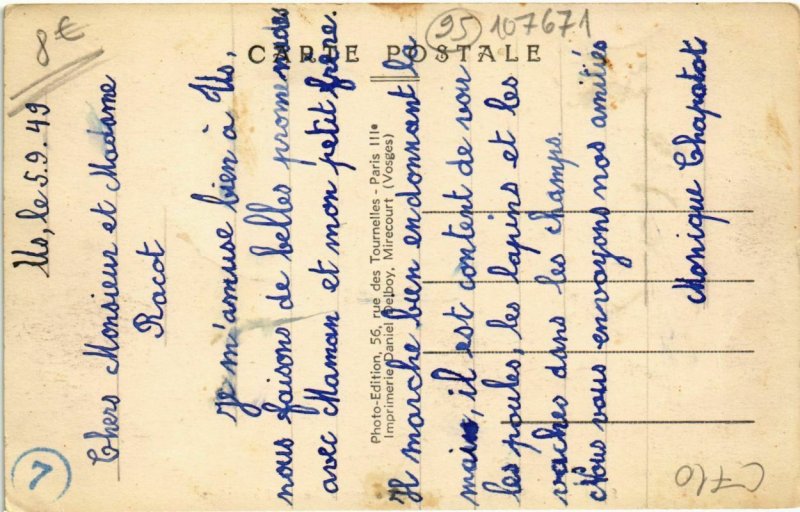 8€
95 107671
CARTE POSTALE
Us, le 5.9.49
Chers Monsieur et Madame
Racot
Je m'amuse bien à Us,
nous faisons de belles promenades
avec Maman et mon petit frère.
Il marche bien en donnant la
main, il est content de voir
les poules, les lapins et les
vaches dans les champs.
Nous vous envoyons nos amitiés
Monique Chapotot
Photo-Edition, 56, rue des Tournelles - Paris IIIe
Imprimerie Daniel Delboy, Mirecourt (Vosges)
V